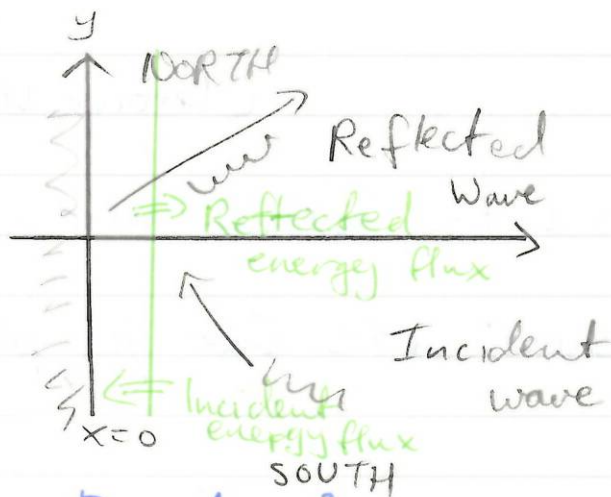 y
NORTH
Reflected
Wave
Reflected
energy flux
Incident
wave
Incident
energy flux
x=0
SOUTH